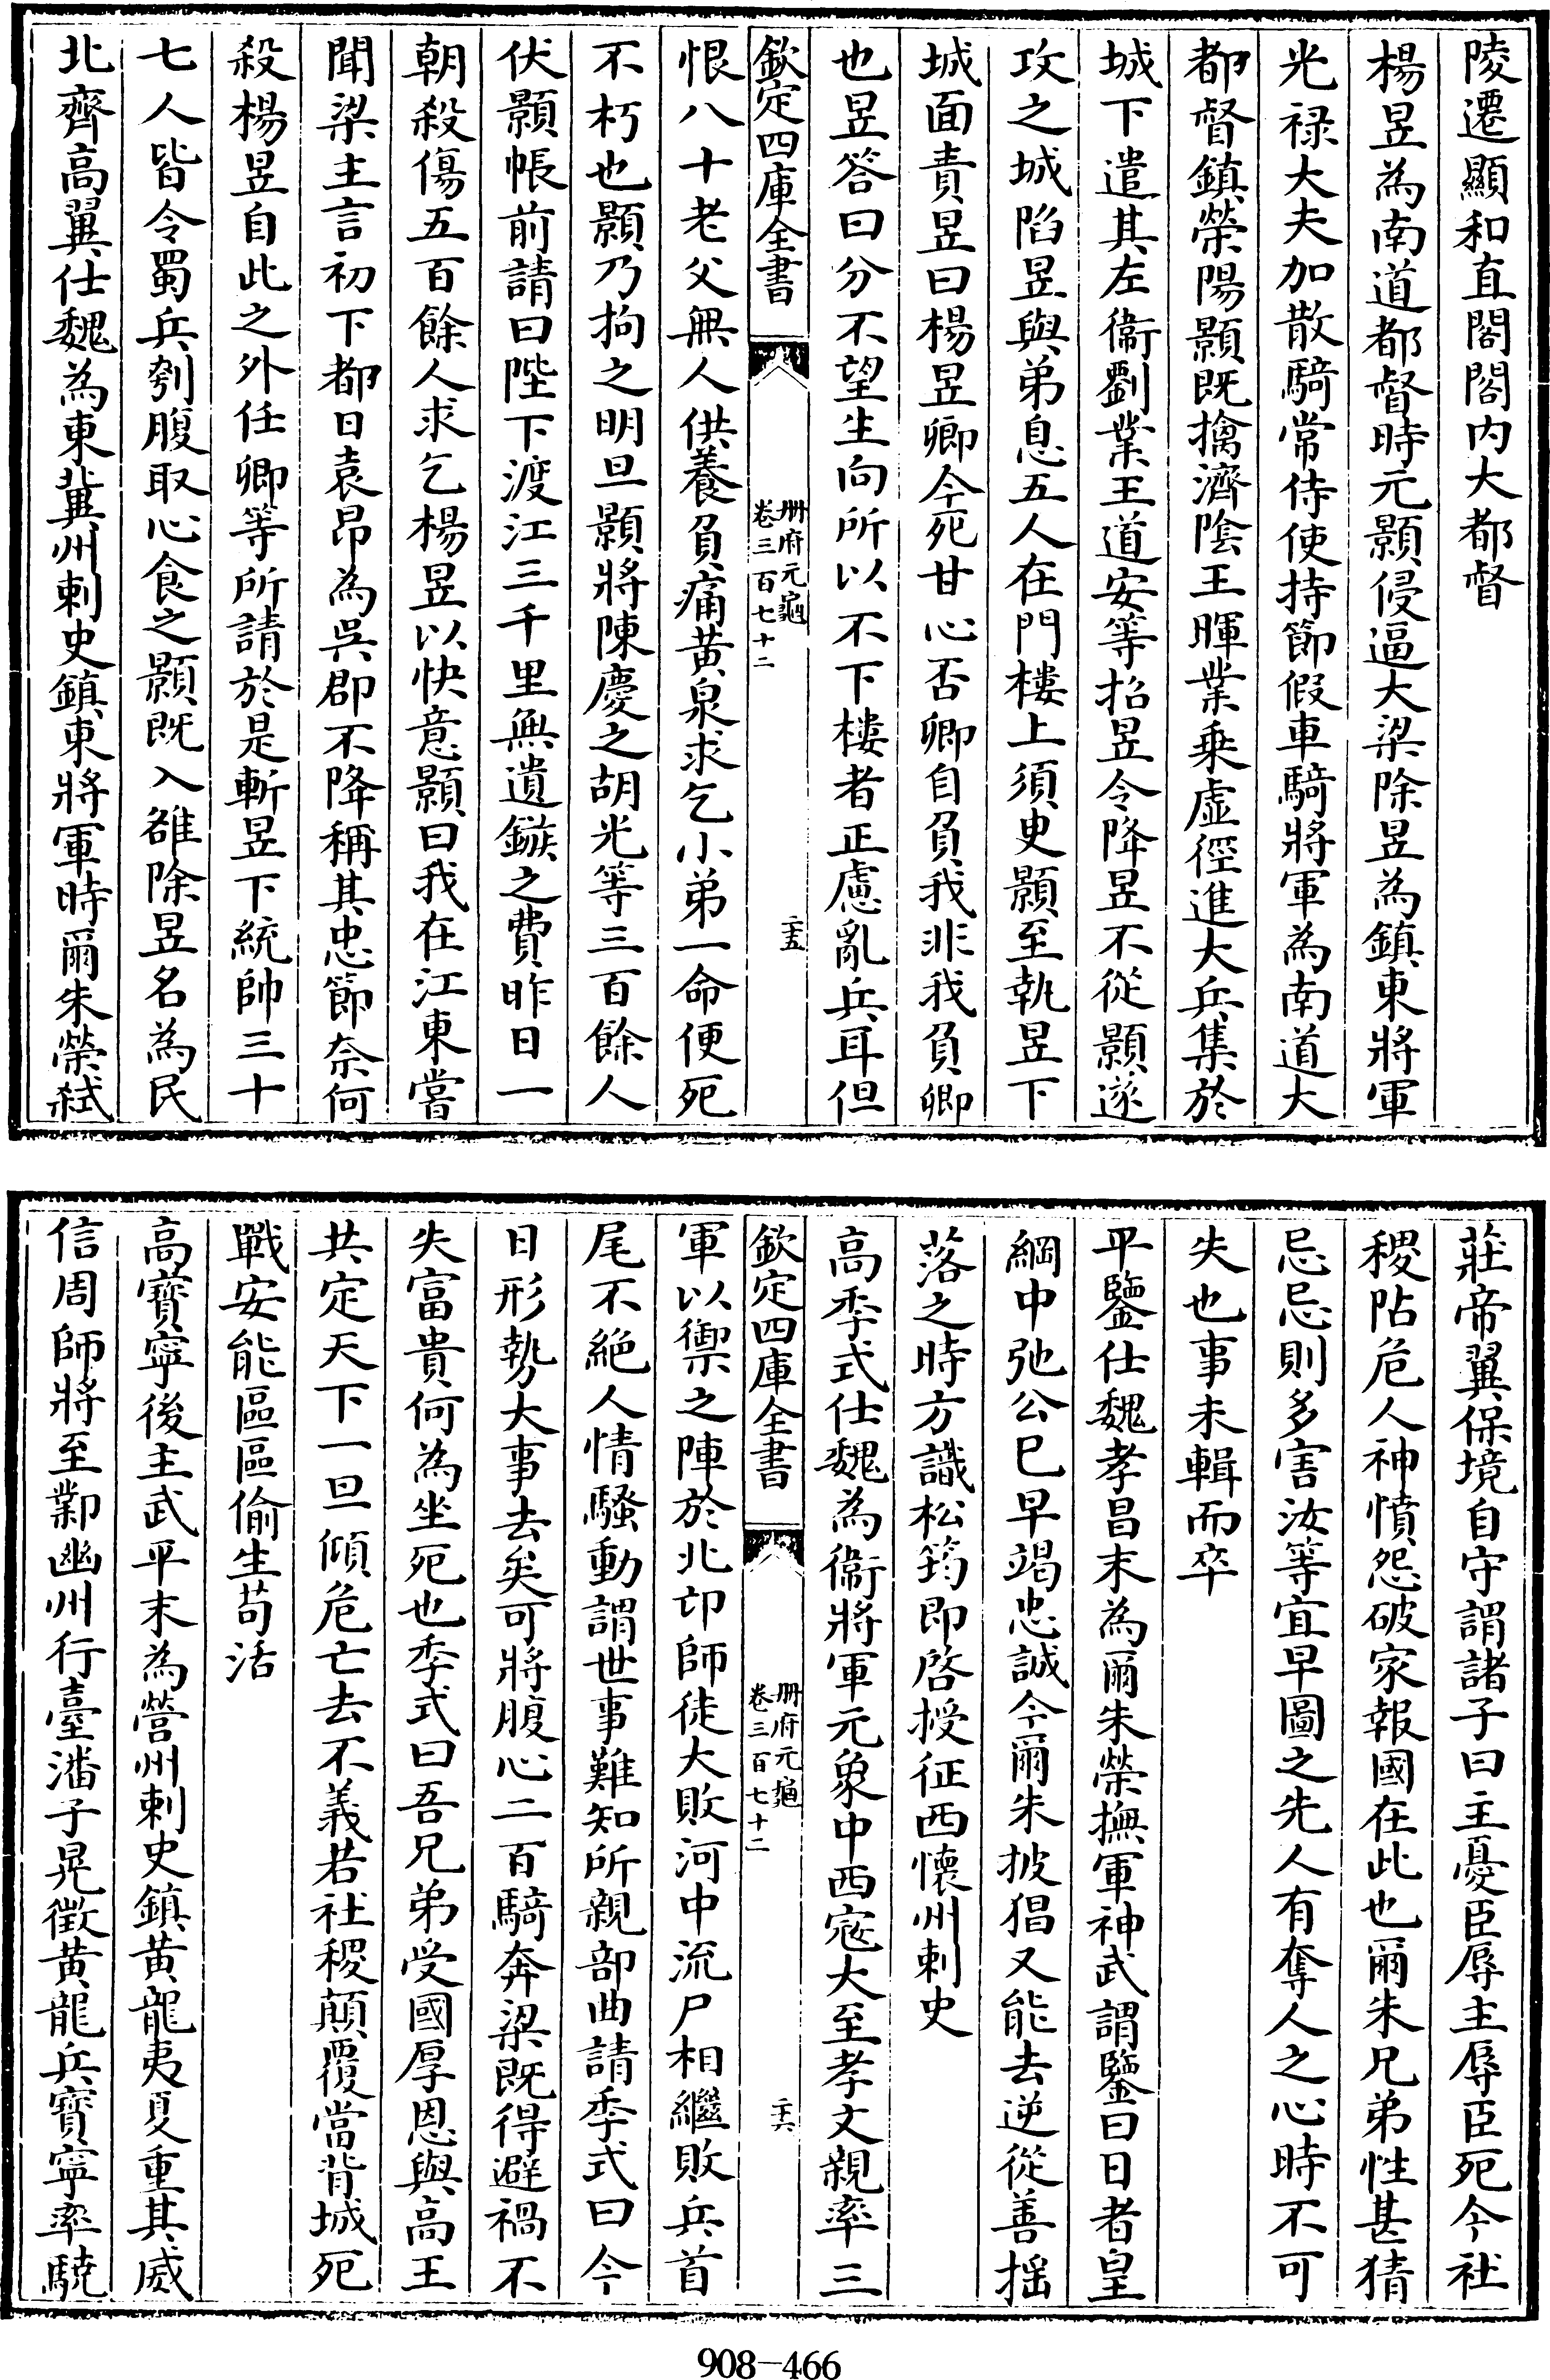 陵遷顯和直閣閤内大都督
楊昱為南道都督時元顥侵逼大梁除昱為鎮東將軍
光禄大夫加散騎常侍使持節假車騎將軍為南道大
都督鎮榮陽顥既擒濟隂王暉業乗虚徑進大兵集於
城下遣其左衞劉業王道安等招昱令降昱不從顥遂
攻之城陷昱與弟息五人在門樓上須史顥至執昱下
城面責昱曰楊昱卿今死甘心否卿自負我非我負卿
也昱答曰分不望生向所以不下樓者正慮亂兵耳但
欽定四庫全書
册府元龜
卷三百七十二
二十五
恨八十老父無人供養負痛黄泉求乞小弟一命便死
不朽也顥乃拘之明旦顥將陳慶之胡光等三百餘人
伏顥帳前請曰陛下渡江三千里無遺鏃之費昨日一
朝殺傷五百餘人求乞楊昱以快意顥曰我在江東嘗
聞梁主言初下都日袁昂為吳郡不降稱其忠節奈何
殺楊昱自此之外任卿等所請於是斬昱下統帥三十
七人皆令蜀兵刳腹取心食之顥既入雒除昱名為民
北齊高翼仕魏為東冀州刺史鎮東將軍時爾朱榮弑
莊帝翼保境自守謂諸子曰主憂臣辱主辱臣死今社
稷阽危人神憤怨破家報國在此也爾朱兄弟性甚猜
忌忌則多害汝等宜早圖之先人有奪人之心時不可
失也事未輯而卒
平鑒仕魏孝昌末為爾朱榮撫軍神武謂鑒曰日者皇
綱中弛公已早竭忠誠今爾朱披猖又能去逆從善揺
落之時方識松筠即啓授征西懷州刺史
高季式仕魏為衞將軍元象中西宼大至孝文親率三
欽定四庫全書
册府元龜
卷三百七十二
二十六
軍以禦之陣於北邙師徒大敗河中流尸相繼敗兵首
尾不絶人情騷動謂世事難知所親部曲請季式曰今
日形勢大事去矣可將腹心二百騎奔梁既得避禍不
失富貴何為坐死也季式曰吾兄弟受國厚恩與高王
共定天下一旦傾危亡去不義若社稷顛覆當背城死
戰安能區區偷生苟活
高寶寧後主武平末為營州刺史鎮黄龍夷夏重其威
信周師將至鄴幽州行臺潘子晃徵黄龍兵寶寧率驍
908-466